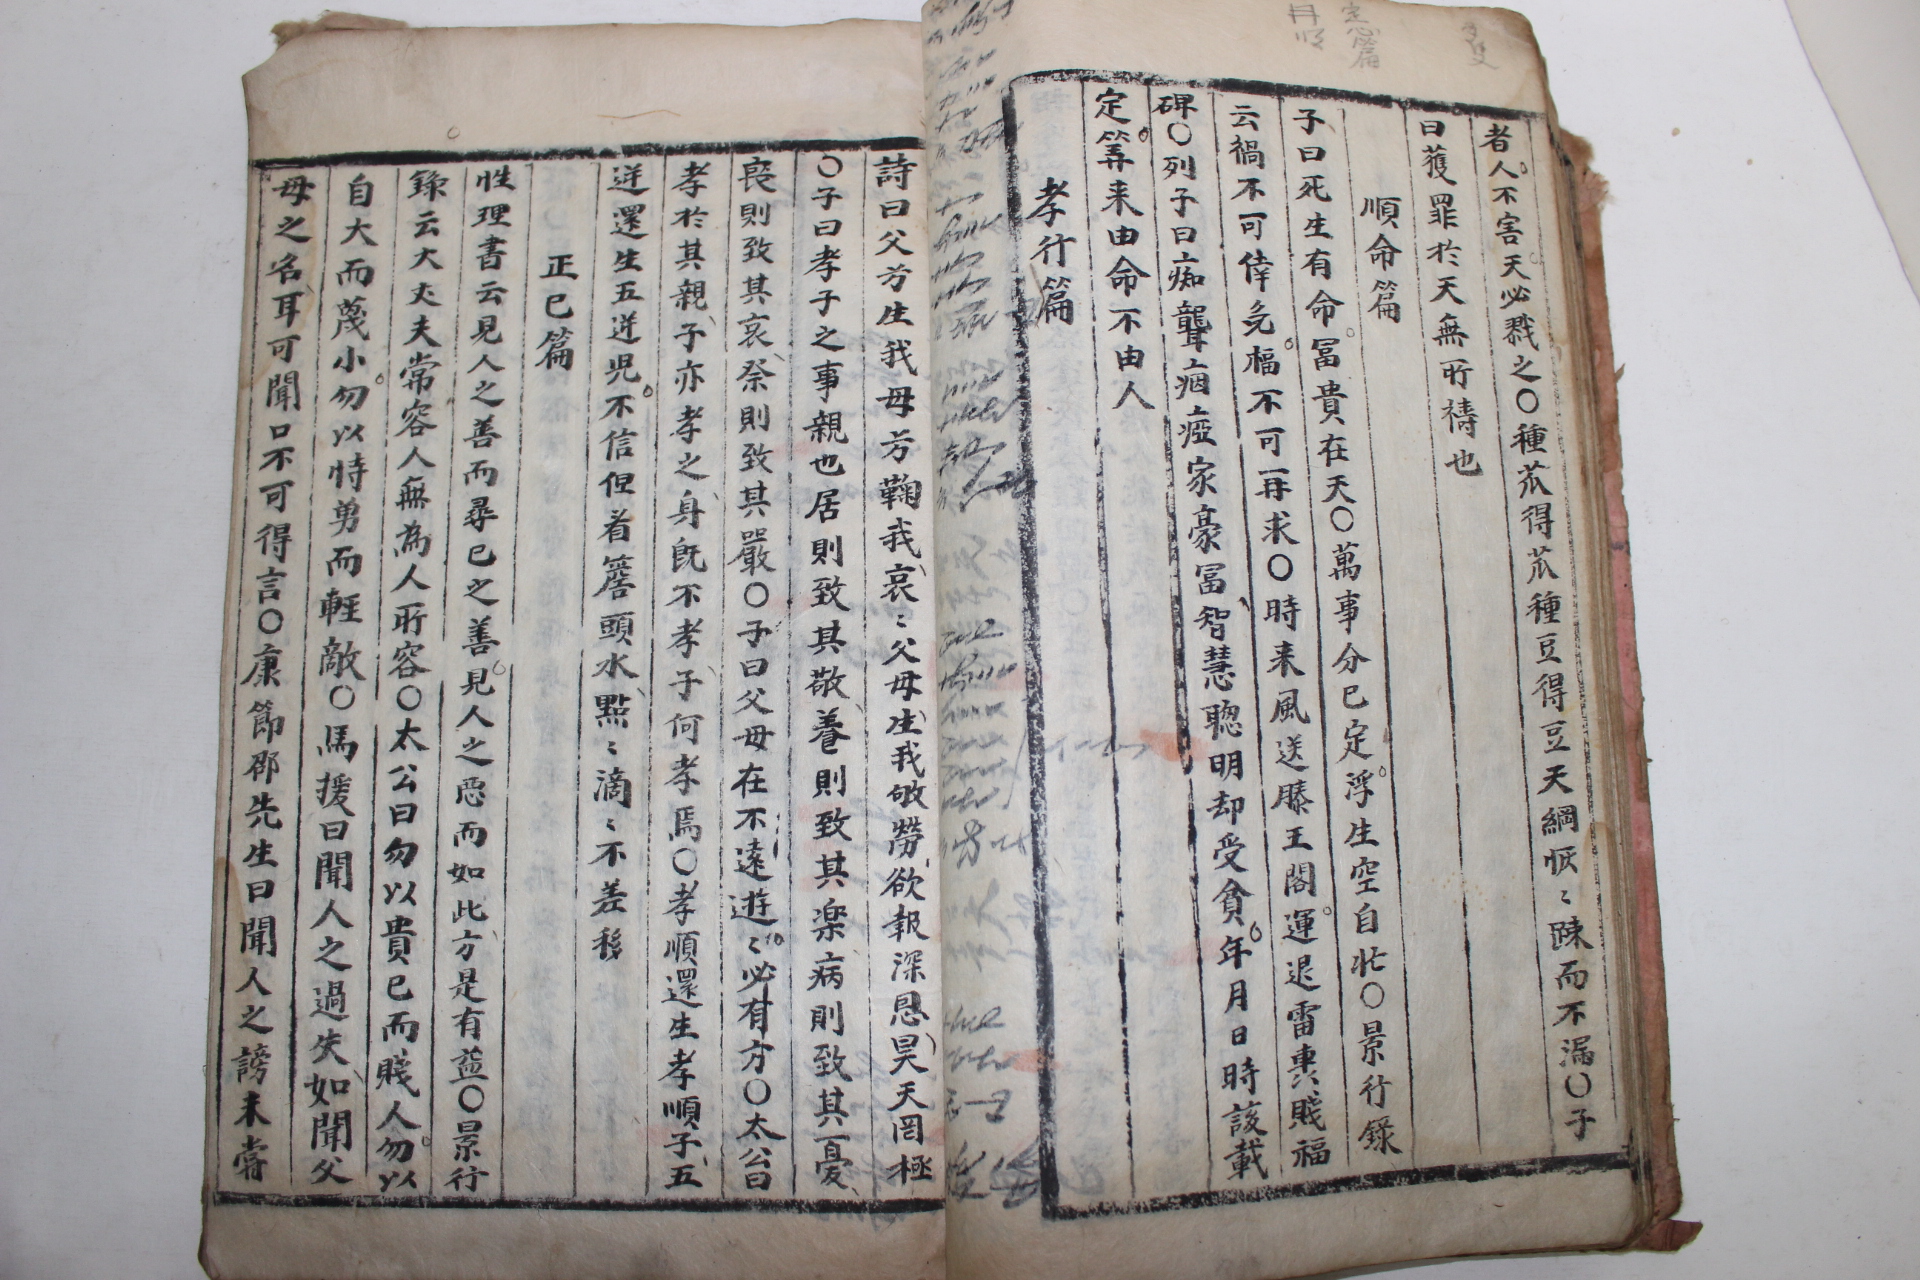 者人不害天必戮之〇種苽得苽種豆得豆天綱恢〻踈而不漏〇子
曰獲罪於天無所禱也
順命篇
子曰死生有命冨貴在天〇萬事分已定浮生空自忙〇景行錄
云禍不可倖免福不可再求〇時来風送滕王閣運退雷轟賤福
碑〇列子曰痴聾痼瘂家豪冨智慧聰明却受貧年月日時該載
定筭来由命不由人
孝行篇
詩曰父兮生我母兮鞠我哀〻父母生我劬勞欲報深恩昊天罔極
〇子曰孝子之事親也居則致其敬養則致其樂病則致其憂
喪則致其哀祭則致其嚴〇子曰父母在不遠遊〻必有方〇太公曰
孝於其親子亦孝之身旣不孝子何孝焉〇孝順還生孝順子五
逆還生五逆児不信但看簷頭水點〻滴〻不差移
正已篇
性理書云見人之善而尋已之善見人之惡而如此方是有益〇景行
錄云大丈夫常容人無為人所容〇太公曰勿以貴已而賤人勿以
自大而蔑小勿以恃勇而輕敵〇馬援曰聞人之過失如聞父
母之名耳可聞口不可得言〇康節邵先生曰聞人之謗未嘗